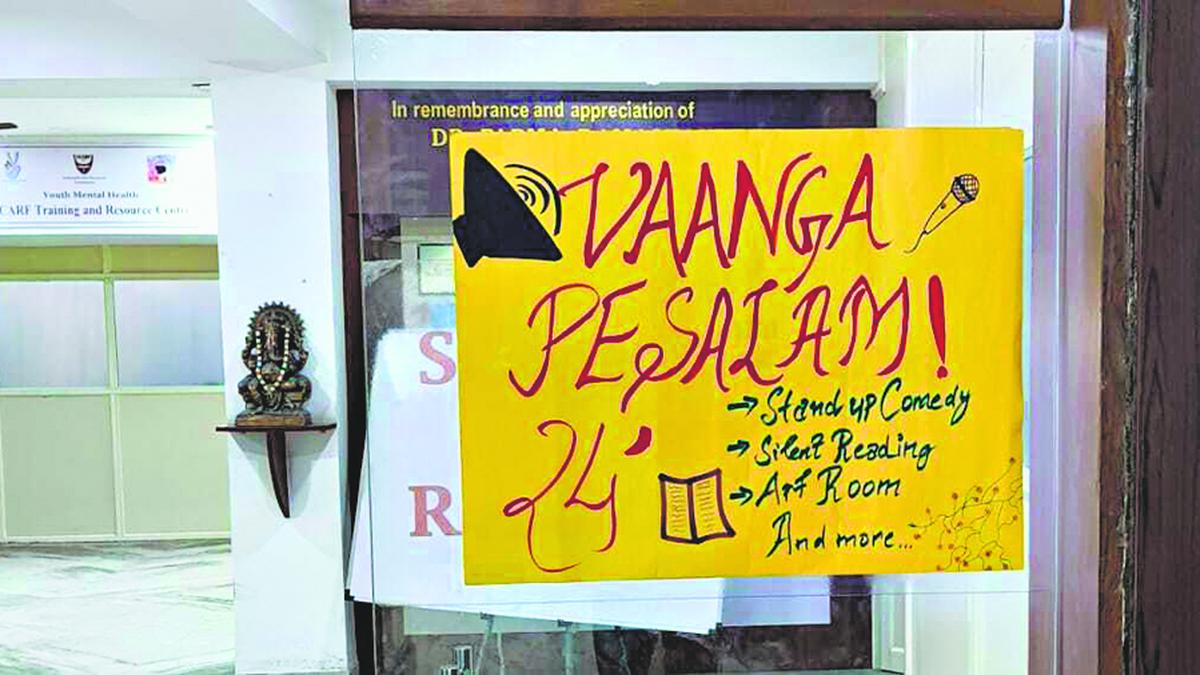 In remembrance and appreciation of
DR.
Youth Mental Health
SCARF Training and Resource Centre
VAANGA
PESALAM!
24'
→ Stand up Comedy
→ Silent Reading
→ Art Room
And more...
S
R